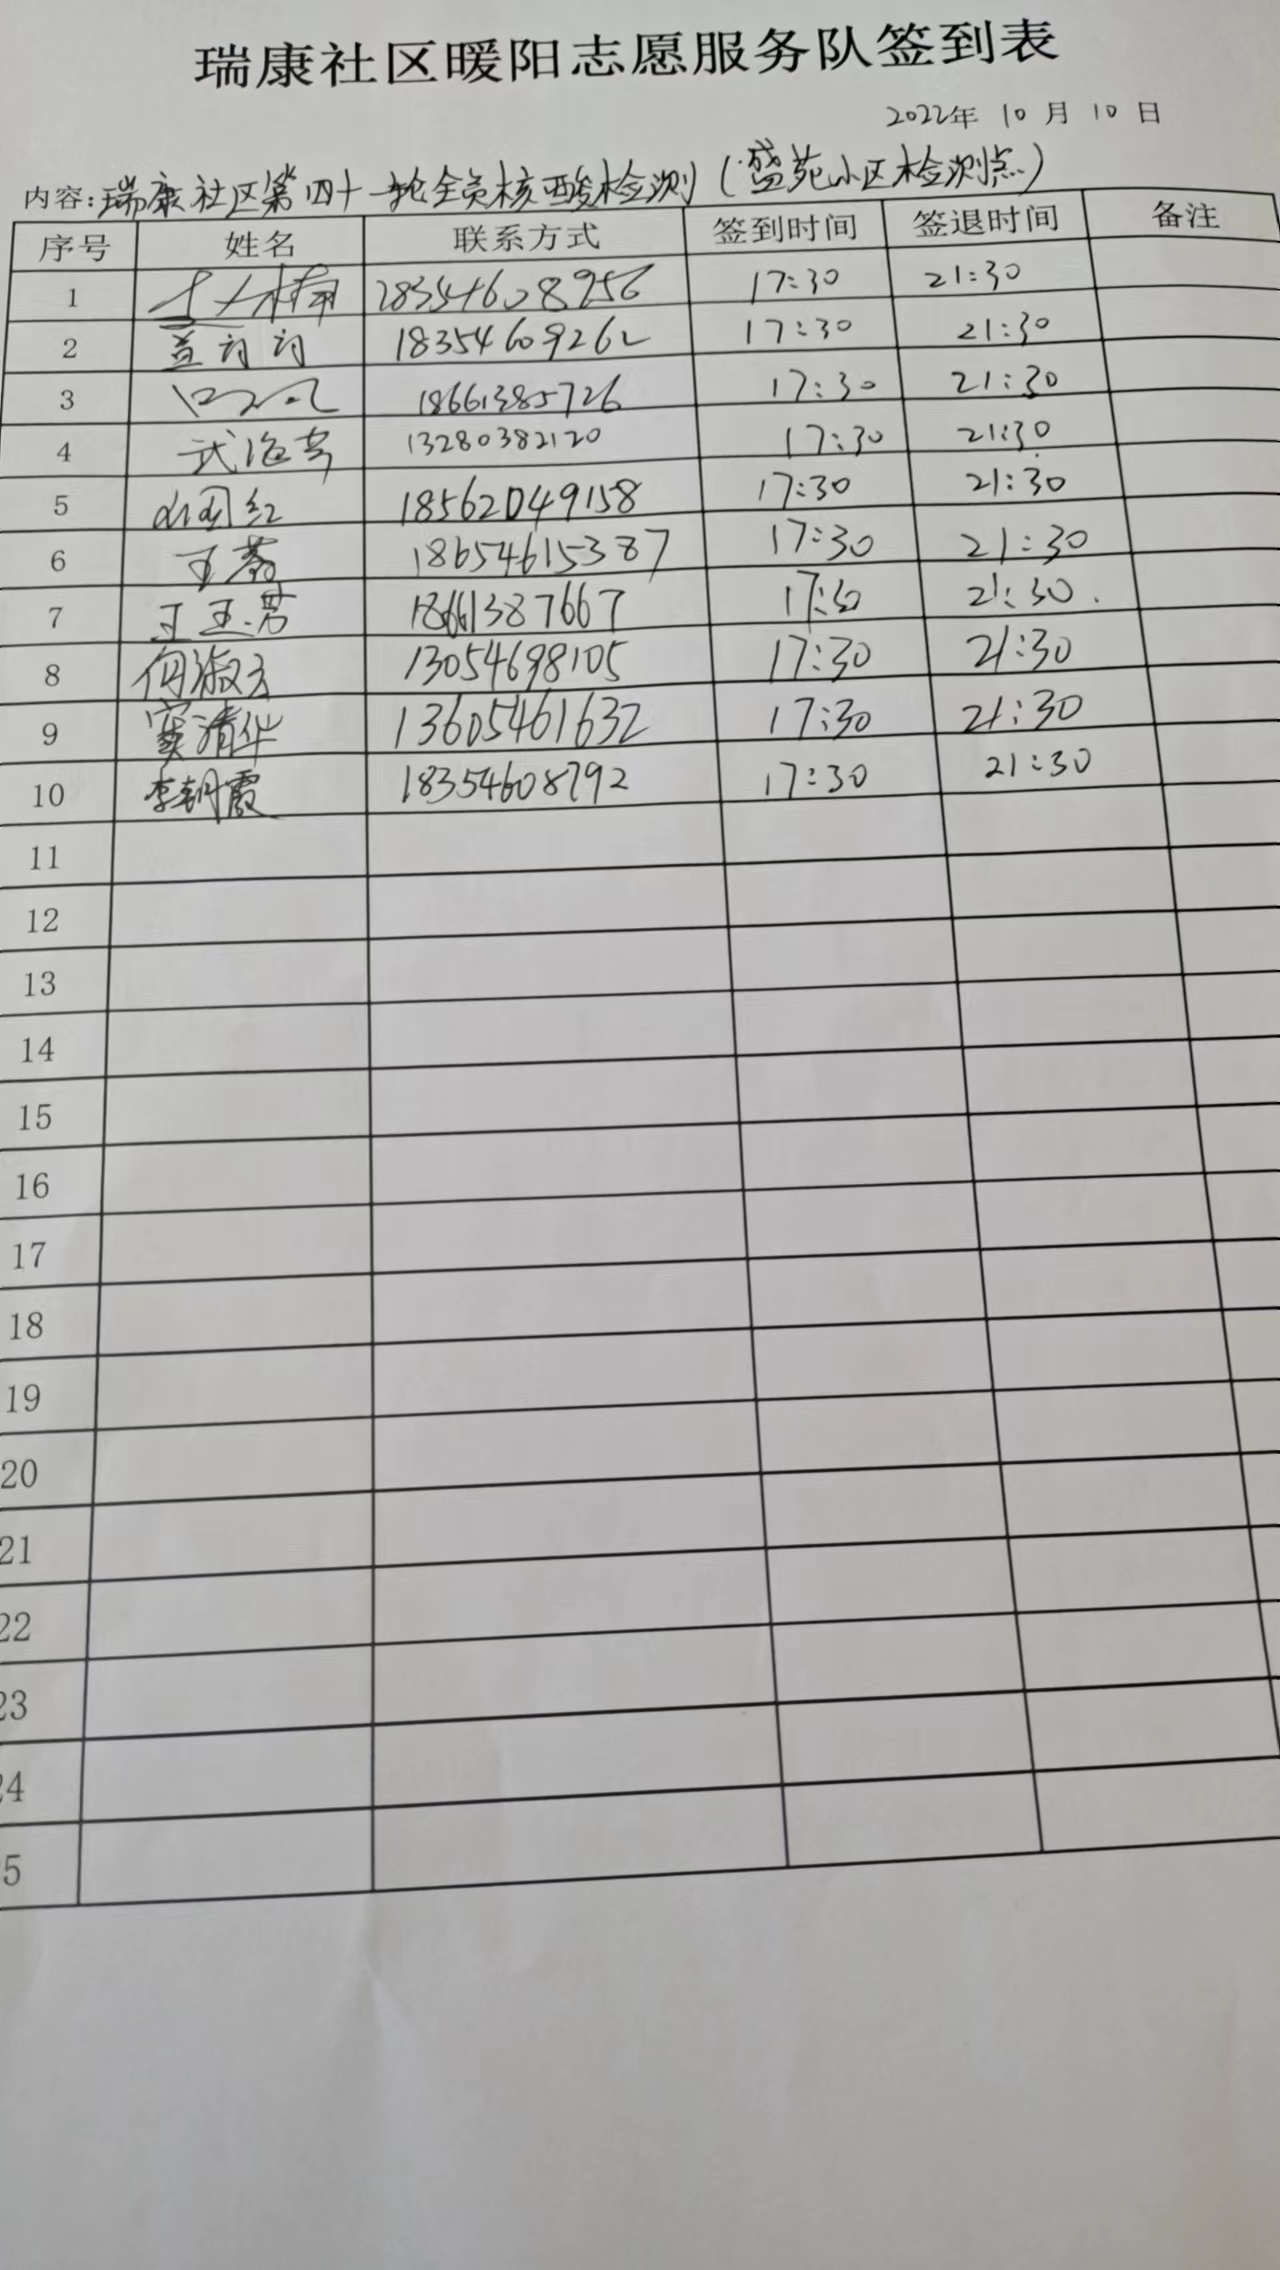 瑞康社区暖阳志愿服务队签到表
2022年 10 月 10 日
内容:瑞康社区第四十一轮全员核酸检测(盛苑小区检测点)
序号 姓名 联系方式 签到时间 签退时间 备注
1 17:30 21:30
2 18354609262 17:30 21:30
3 18661385726 17:30 21:30
4 武海 13280382120 17:30 21:30
5 红 18562049158 17:30 21:30
6 王 18654615387 17:30 21:30
7 王玉 18661387667 17:30 21:30.
8 何淑云 13054698105 17:30 21:30
9 窦清华 13605461632 17:30 21:30
10 李朝霞 18354608792 17:30 21:30
11
12
13
14
15
16
17
18
19
20
21
22
23
24
5